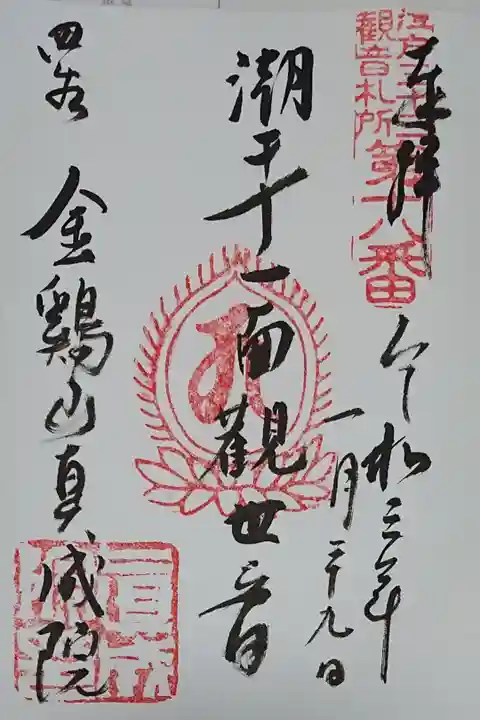 江戸三十三
觀音札所
第十八番
奉拝
令和三年
一月二十九日
潮干十一面觀世音
四谷 金鷄山真成院